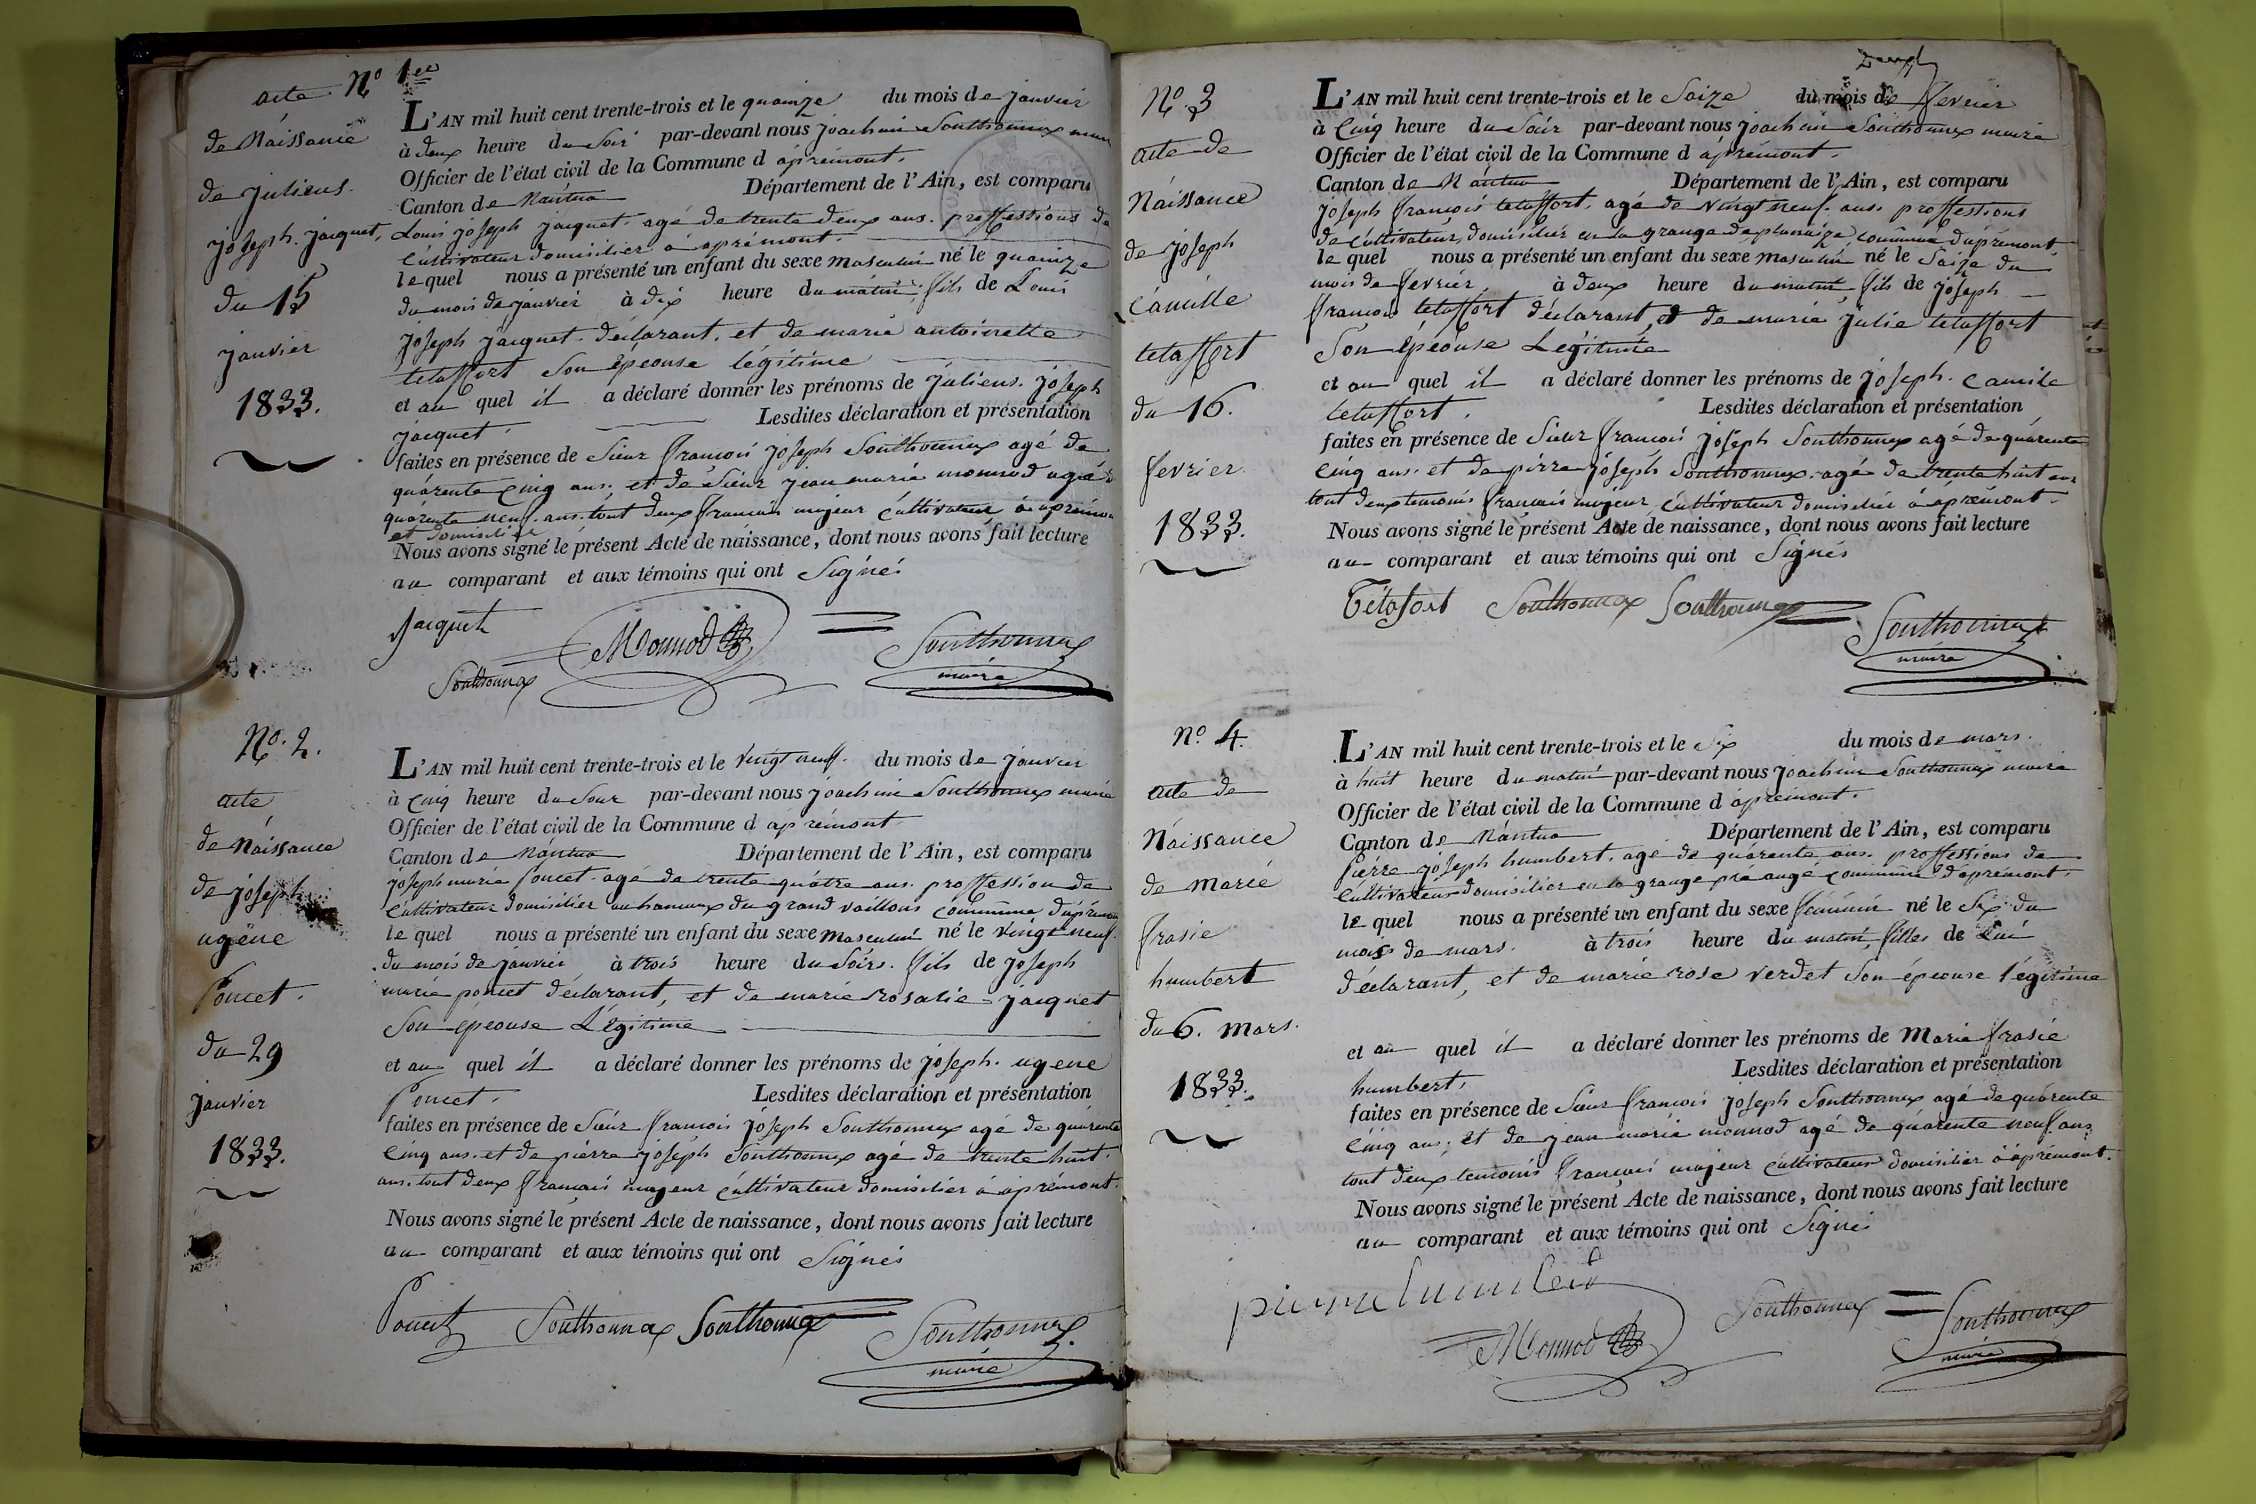 acte N.o 1er
de Naissance
de juliens.
joseph. jacquet.
du 15
janvier
1833.
L'AN mil huit cent trente-trois et le quainze du mois de janvier
à deux heure du Soir par-devant nous joachim Southonnax maire
Officier de l'état civil de la Commune d apremont.
Canton de Nantua Département de l'Ain, est comparu
Louis joseph jacquet. agé de trente deux ans. proffessions de
Cultivateur domicilier a apremont.
le quel nous a présenté un enfant du sexe masculin né le quainze
du mois de janvier à dix heure du matin, fils de Louis
joseph jacquet. déclarant. et de marie antoinette
tetaffort Son épeouse légitime
et au quel il a déclaré donner les prénoms de juliens. joseph
jacquet. Lesdites déclaration et présentation
faites en présence de Sieur francois joseph Southonnax agé de
quarente Cinq ans. et de Sieur jean marie monnod agé de
quarente neuf. ans. tout deux francais majeur Cultivateur a apremon
et domicilier
Nous avons signé le présent Acte de naissance, dont nous avons fait lecture
au comparant et aux témoins qui ont Signés
Jacquet
Monnod
Southonnax
Southonnax
maire
N.o 2.
acte
de Naissance
de joseph
ugène
Poncet.
du 29
janvier
1833.
L'AN mil huit cent trente-trois et le vingt neuf. du mois de janvier
à Cinq heure du Soir par-devant nous joachim Southonnax maire
Officier de l'état civil de la Commune d apremont
Canton de Nantua Département de l'Ain, est comparu
joseph marie Poncet. agé de trente quatre ans. proffession de
Cultivateur domicilier au hamaux du grand vaillons Commune d'apremon
le quel nous a présenté un enfant du sexe masculin né le vingt neuf.
du mois de janvier à trois heure du Soirs. fils de joseph
marie poncet déclarant, et de marie rosalie jacquet
Son epeouse Légitime
et au quel il a déclaré donner les prénoms de joseph. ugene
Poncet. Lesdites déclaration et présentation
faites en présence de Sieur francois joseph Southonnax agé de quarente
Cinq ans. et de pierre joseph Southonnax agé de trente huit.
ans. tout deux francais majeur Cultivateur domicilier a apremont.
Nous avons signé le présent Acte de naissance, dont nous avons fait lecture
au comparant et aux témoins qui ont Signés
Poncet Southonnax Southonnax Southonnax
maire
N.o 3
acte de
Naissance
de joseph
Camille
tetaffort
du 16.
fevrier
1833.
L'AN mil huit cent trente-trois et le Saize du mois de fevrier
à Cinq heure du Soir par-devant nous joachim Southonnax maire
Officier de l'état civil de la Commune d apremont.
Canton de Nantua Département de l'Ain, est comparu
joseph francois tetaffort. agé de vingt neuf. ans. proffessions
de Cultivateur, domicilier en la grange de commune d'apremont
le quel nous a présenté un enfant du sexe masculin né le Saize du
mois de fevrier à deux heure du matin, fils de joseph
francois tetaffort déclarant, et de marie julie tetaffort
Son épeouse Legitime
et au quel il a déclaré donner les prénoms de joseph. Camile
tetaffort. Lesdites déclaration et présentation
faites en présence de Sieur francois joseph Southonnax agé de quarente
Cinq ans. et de pirre joseph Southonnax. agé de trente huit ans
tout deux temoins francais majeur Cultivateur domicilier a apremont.
Nous avons signé le présent Acte de naissance, dont nous avons fait lecture
au comparant et aux témoins qui ont Signés
Tétafort Southonnax Southonnax Southonnax
maire
N.o 4.
acte de
Naissance
de marie
frasie
humbert
du 6. mars.
1833.
L'AN mil huit cent trente-trois et le Six du mois de mars.
à huit heure du matin par-devant nous joachim Southonnax maire
Officier de l'état civil de la Commune d apremont.
Canton de Nantua Département de l'Ain, est comparu
Pierre joseph humbert. agé de quarente ans. proffessions de
Cultivateur domicilier en la grange pré augé commune d'apremont.
le quel nous a présenté un enfant du sexe féminin né le Six du
mois de mars. à trois heure du matin, filles de Lui
déclarant, et de marie rose verdet Son épeouse légitime
et au quel il a déclaré donner les prénoms de Marie frasie
humbert. Lesdites déclaration et présentation
faites en présence de Sieur francois joseph Southonnax agé de quarente
Cinq ans; et de jean marie monnod agé de quarente neuf ans
tout deux temoins francais majeur Cultivateur domicilier a apremont.
Nous avons signé le présent Acte de naissance, dont nous avons fait lecture
au comparant et aux témoins qui ont Signés
pierre humbert
Monnod
Southonnax
Southonnax
maire